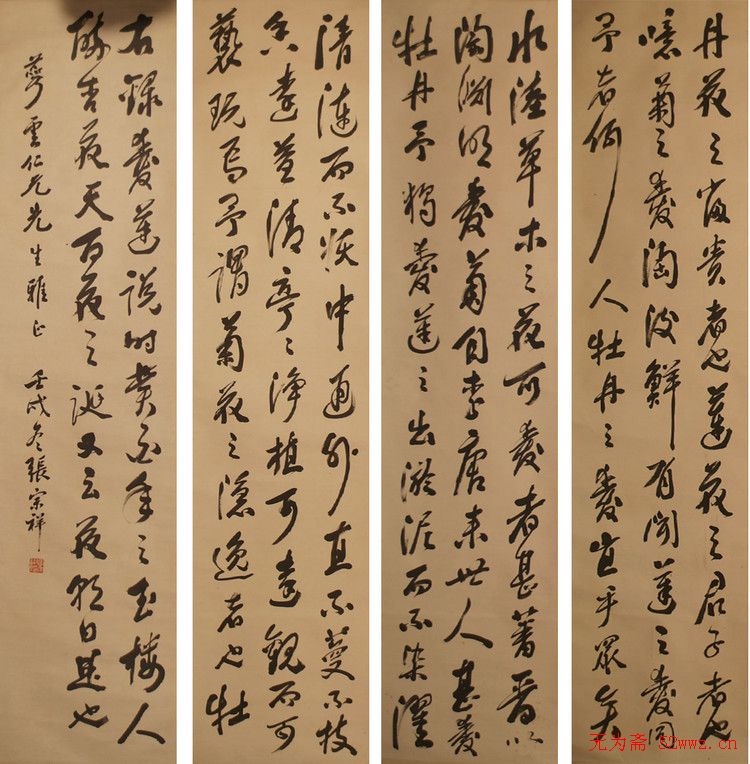 水陸草木之花可愛者甚蕃晉
陶淵明愛菊自李唐來世人甚愛
牡丹予獨愛蓮之出淤泥而不染濯
清漣而不妖中通外直不蔓不枝
香遠益清亭〻淨植可遠觀而不可
褻玩焉予謂菊花之隱逸者也牡
丹花之富貴者也蓮花之君子者也
噫菊之愛陶後鮮有聞蓮之愛同
予者何人牡丹之愛宜乎眾矣
右錄愛蓮說時之玉樓人
花天百花之誕又云花朝日是也
萼雲仁兄先生雅正 壬戌冬張宗祥
无为斋 52wwz.cn